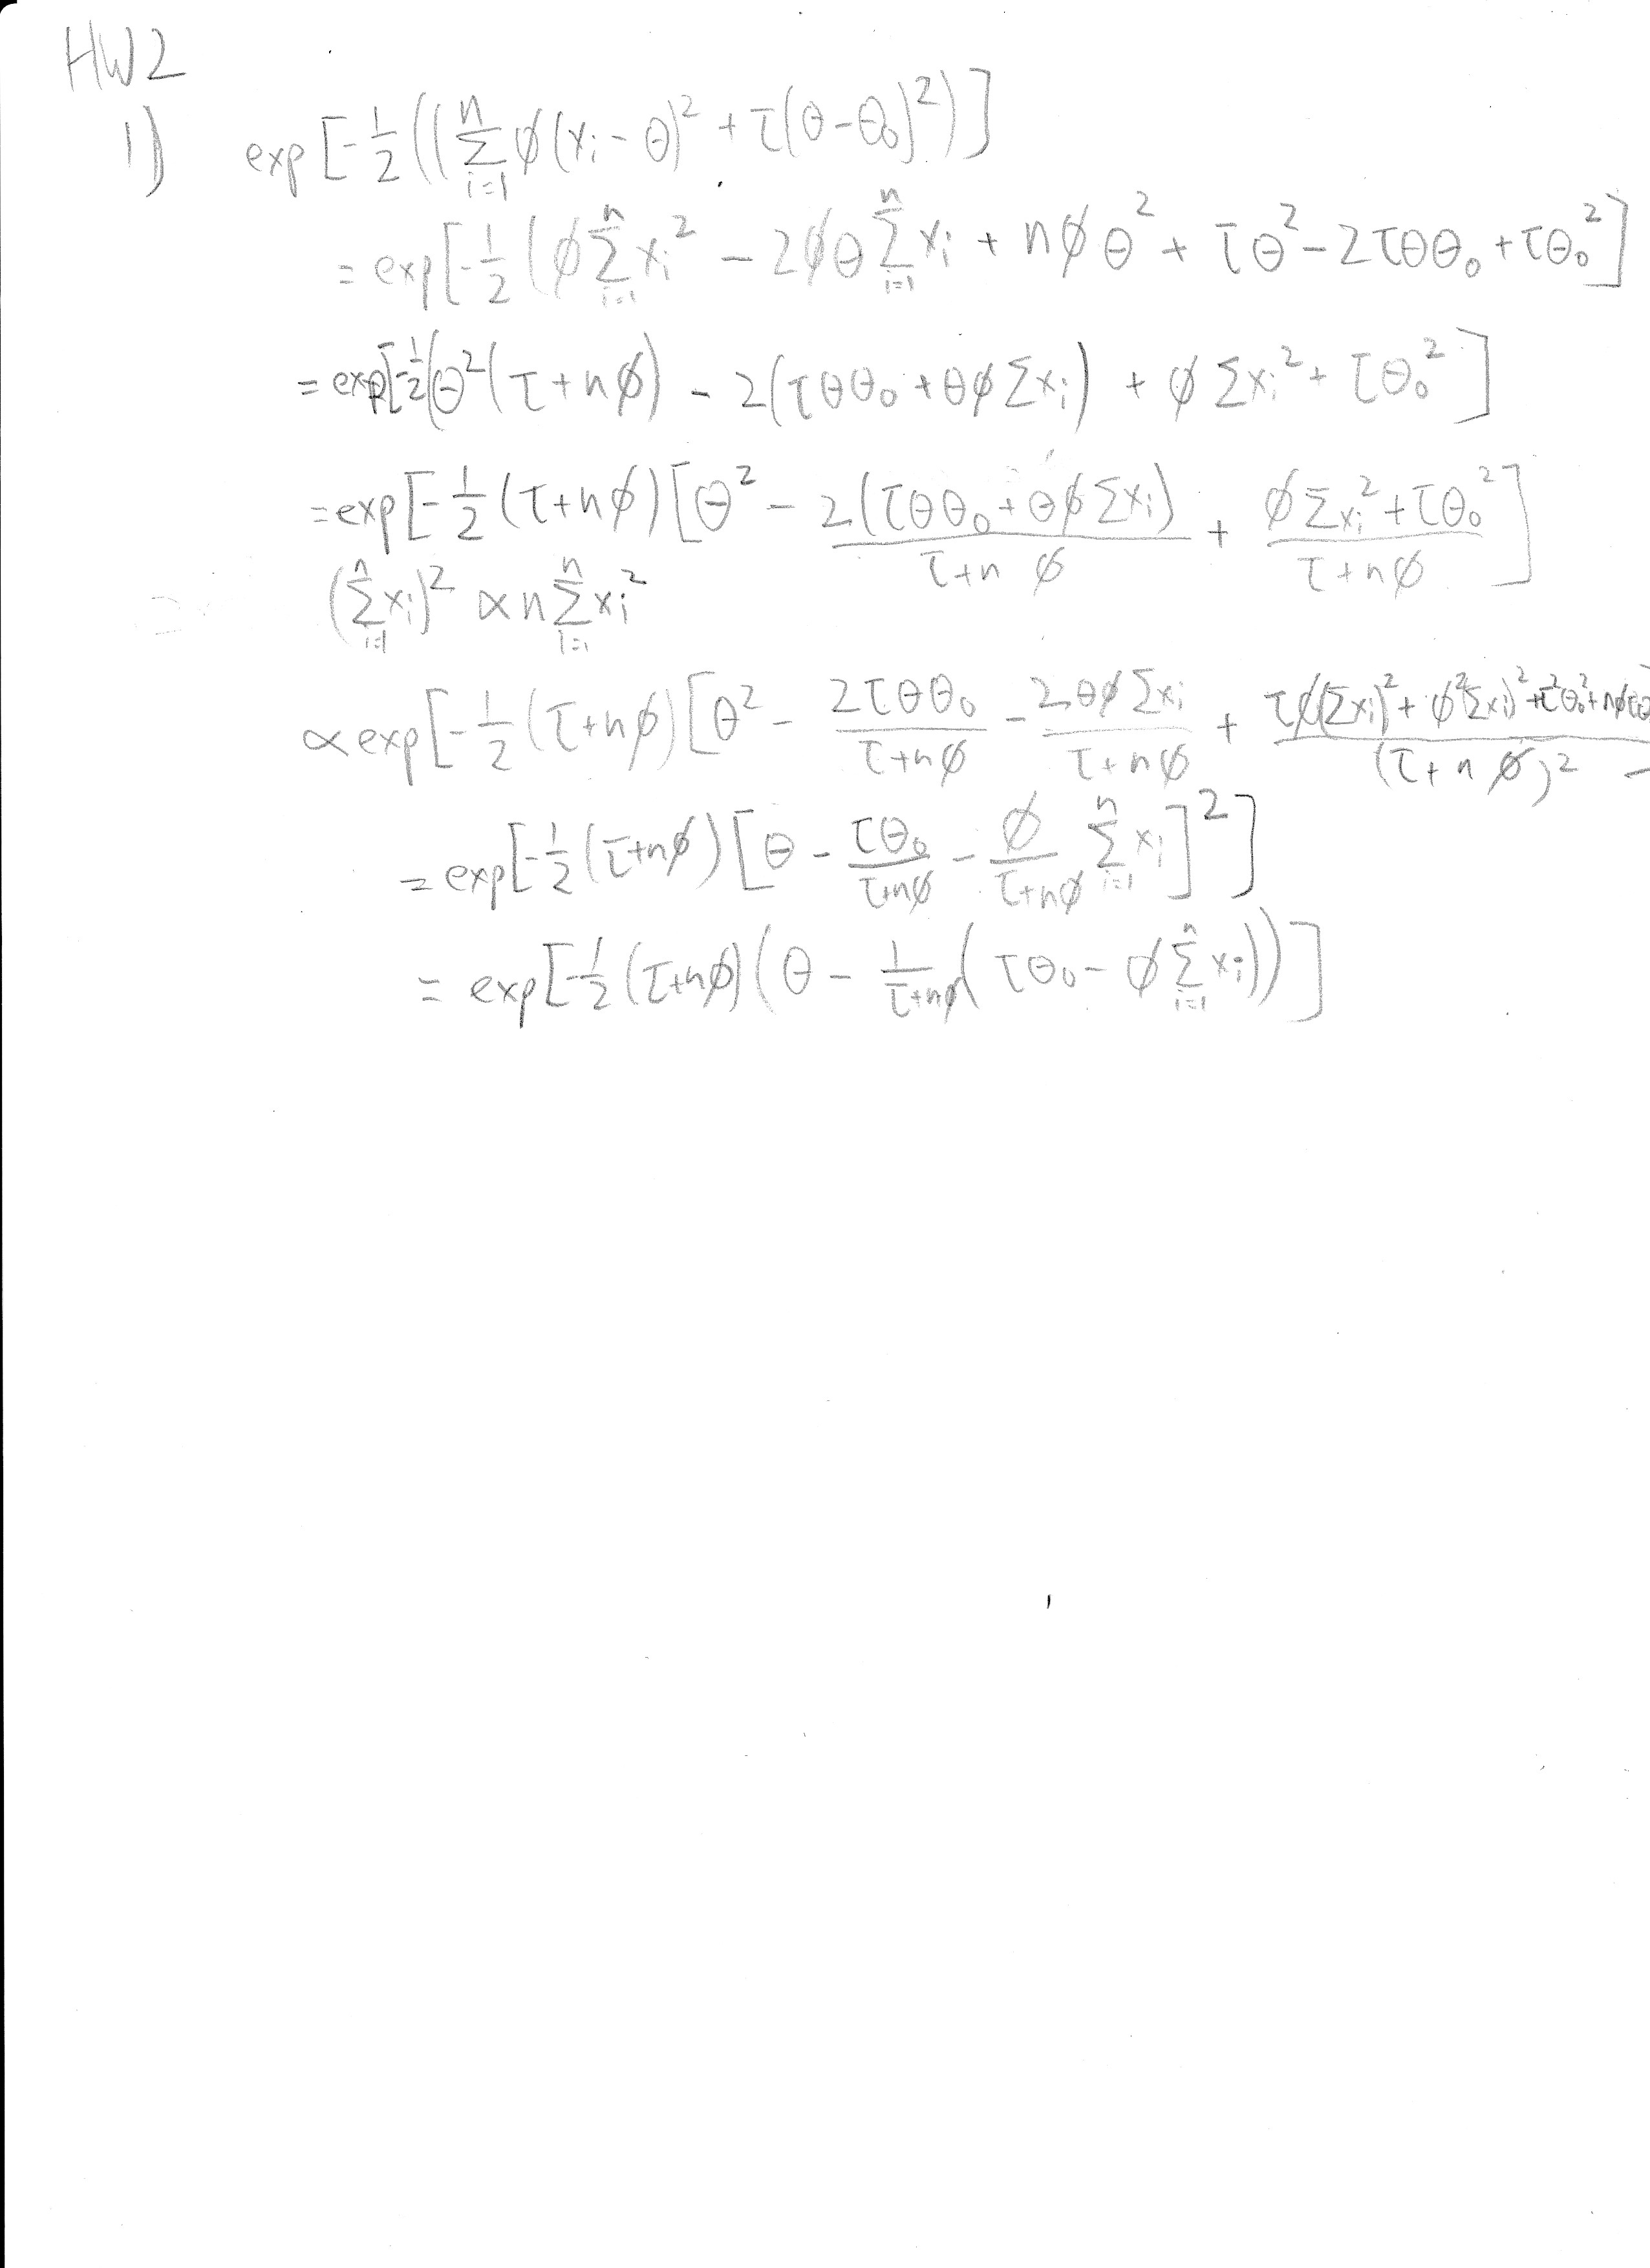 HW2
1) exp[-1/2((∑_{i=1}^{n} ϕ(x_i - θ)^2 + τ(θ - θ_0)^2)]
= exp[-1/2(ϕ∑_{i=1}^{n} x_i^2 - 2ϕθ∑_{i=1}^{n} x_i + nϕθ^2 + τθ^2 - 2τθθ_0 + τθ_0^2]
= exp[-1/2(θ^2(τ+nϕ) - 2(τθθ_0 + θϕ∑x_i) + ϕ∑x_i^2 + τθ_0^2]
= exp[-1/2(τ+nϕ)[θ^2 - 2(τθθ_0 + θϕ∑x_i)/(τ+nϕ) + (ϕ∑x_i^2 + τθ_0^2)/(τ+nϕ)]
(∑_{i=1}^{n} x_i)^2 ∝ n∑_{i=1}^{n} x_i^2
∝ exp[-1/2(τ+nϕ)[θ^2 - 2τθθ_0/(τ+nϕ) - 2θϕ∑x_i/(τ+nϕ) + (τϕ(∑x_i)^2 + ϕ^2(∑x_i)^2 + τ^2θ_0^2 + nϕτθ)/(τ+nϕ)^2
= exp[-1/2(τ+nϕ)[θ - τθ_0/(τ+nϕ) - ϕ/(τ+nϕ) ∑_{i=1}^{n} x_i]^2]
= exp[-1/2(τ+nϕ)(θ - 1/(τ+nϕ)(τθ_0 - ϕ∑_{i=1}^{n} x_i))]